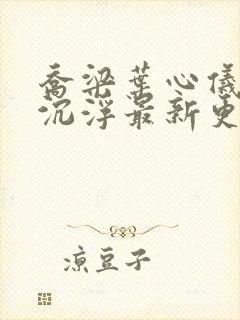 乔梁葉心儀
沉浮最新更
凉豆子